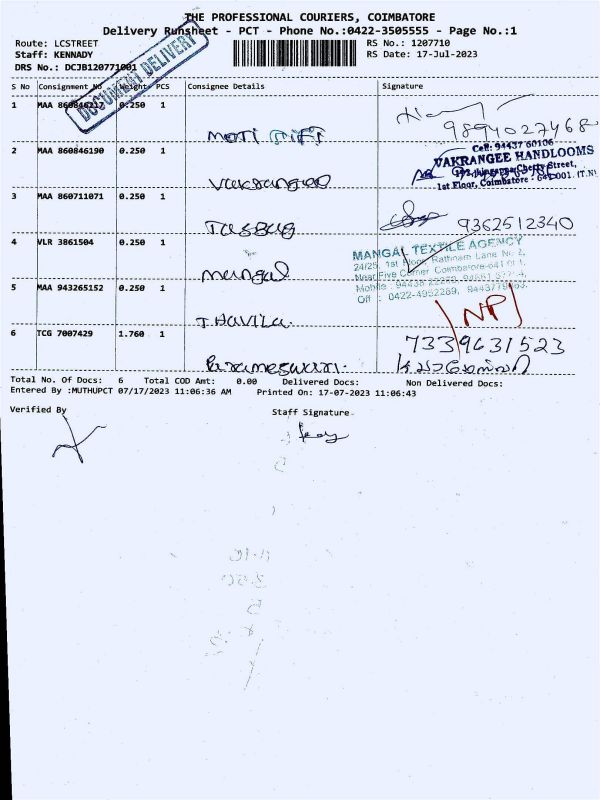 THE PROFESSIONAL COURIERS, COIMBATORE
Delivery Runsheet - PCT - Phone No.:0422-3505555 - Page No.:1
Route: LCSTREET
Staff: KENNADY
DRS No.: DCJB120771001
RS No.: 1207710
RS Date: 17-Jul-2023
DOCUMENT DELIVERY
S No Consignment No Weight PCS Consignee Details Signature
1 MAA 860846217 0.250 1
9894027468
2 MAA 860846190 0.250 1
Cell: 94437 60106
VAKRANGEE HANDLOOMS
Street,
1st Floor, Coimbatore - 641 001. (T.N)
3 MAA 860711071 0.250 1
9362512340
4 VLR 3861504 0.250 1 mangal
MANGAL TEXTILE AGENCY
24/25, 1st Floor, Rathinam Lane No 2,
Near Five Corner Coimbatore-641 001,
Off : 0422-4952269,
5 MAA 943265152 0.250 1 T. Havila.
NP
6 TCG 7007429 1.760 1 Parameswari.
7339631523
Total No. Of Docs: 6 Total COD Amt: 0.00 Delivered Docs: Non Delivered Docs:
Entered By :MUTHUPCT 07/17/2023 11:06:36 AM Printed On: 17-07-2023 11:06:43
Verified By Staff Signature